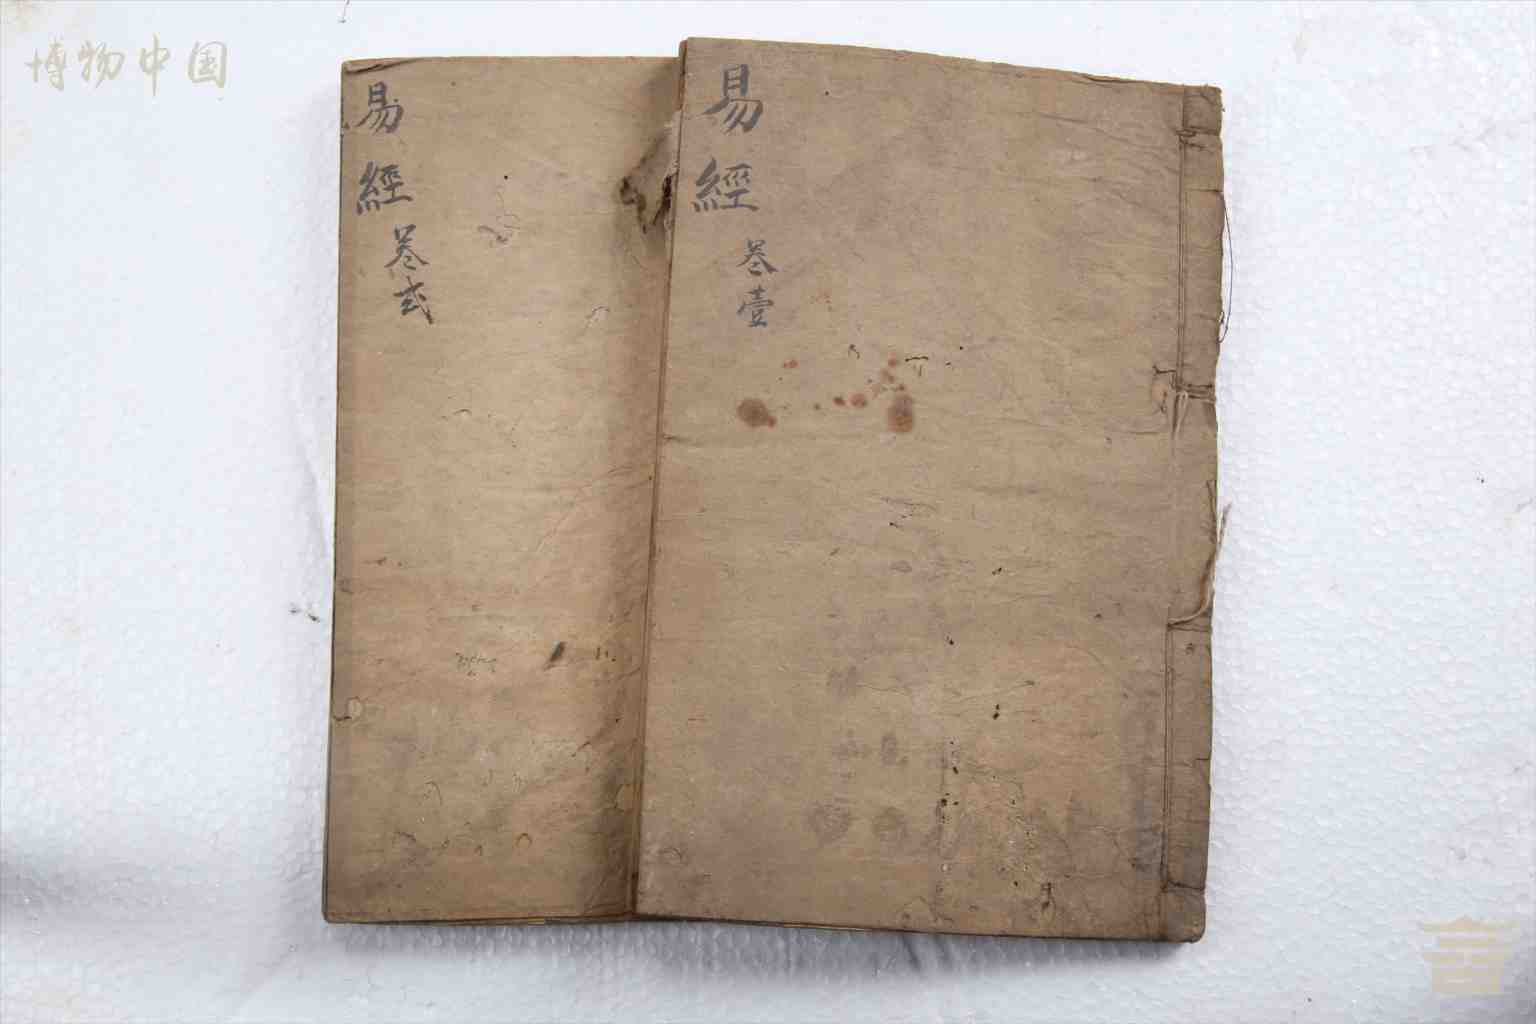 博物中国
易經
卷壹
易經
卷弍